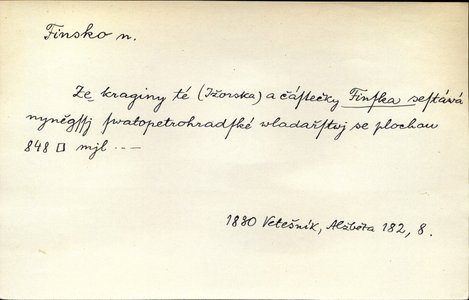 Finsko n.
Ze kraginy té (Ižorska) a čáſtečky Finſka seſtává
nyněgſſj ſwatopetrohradſké wladařſtwj se plochau
848 □ mjl ---
1830 Vetešník, Alžběta 182, 8.